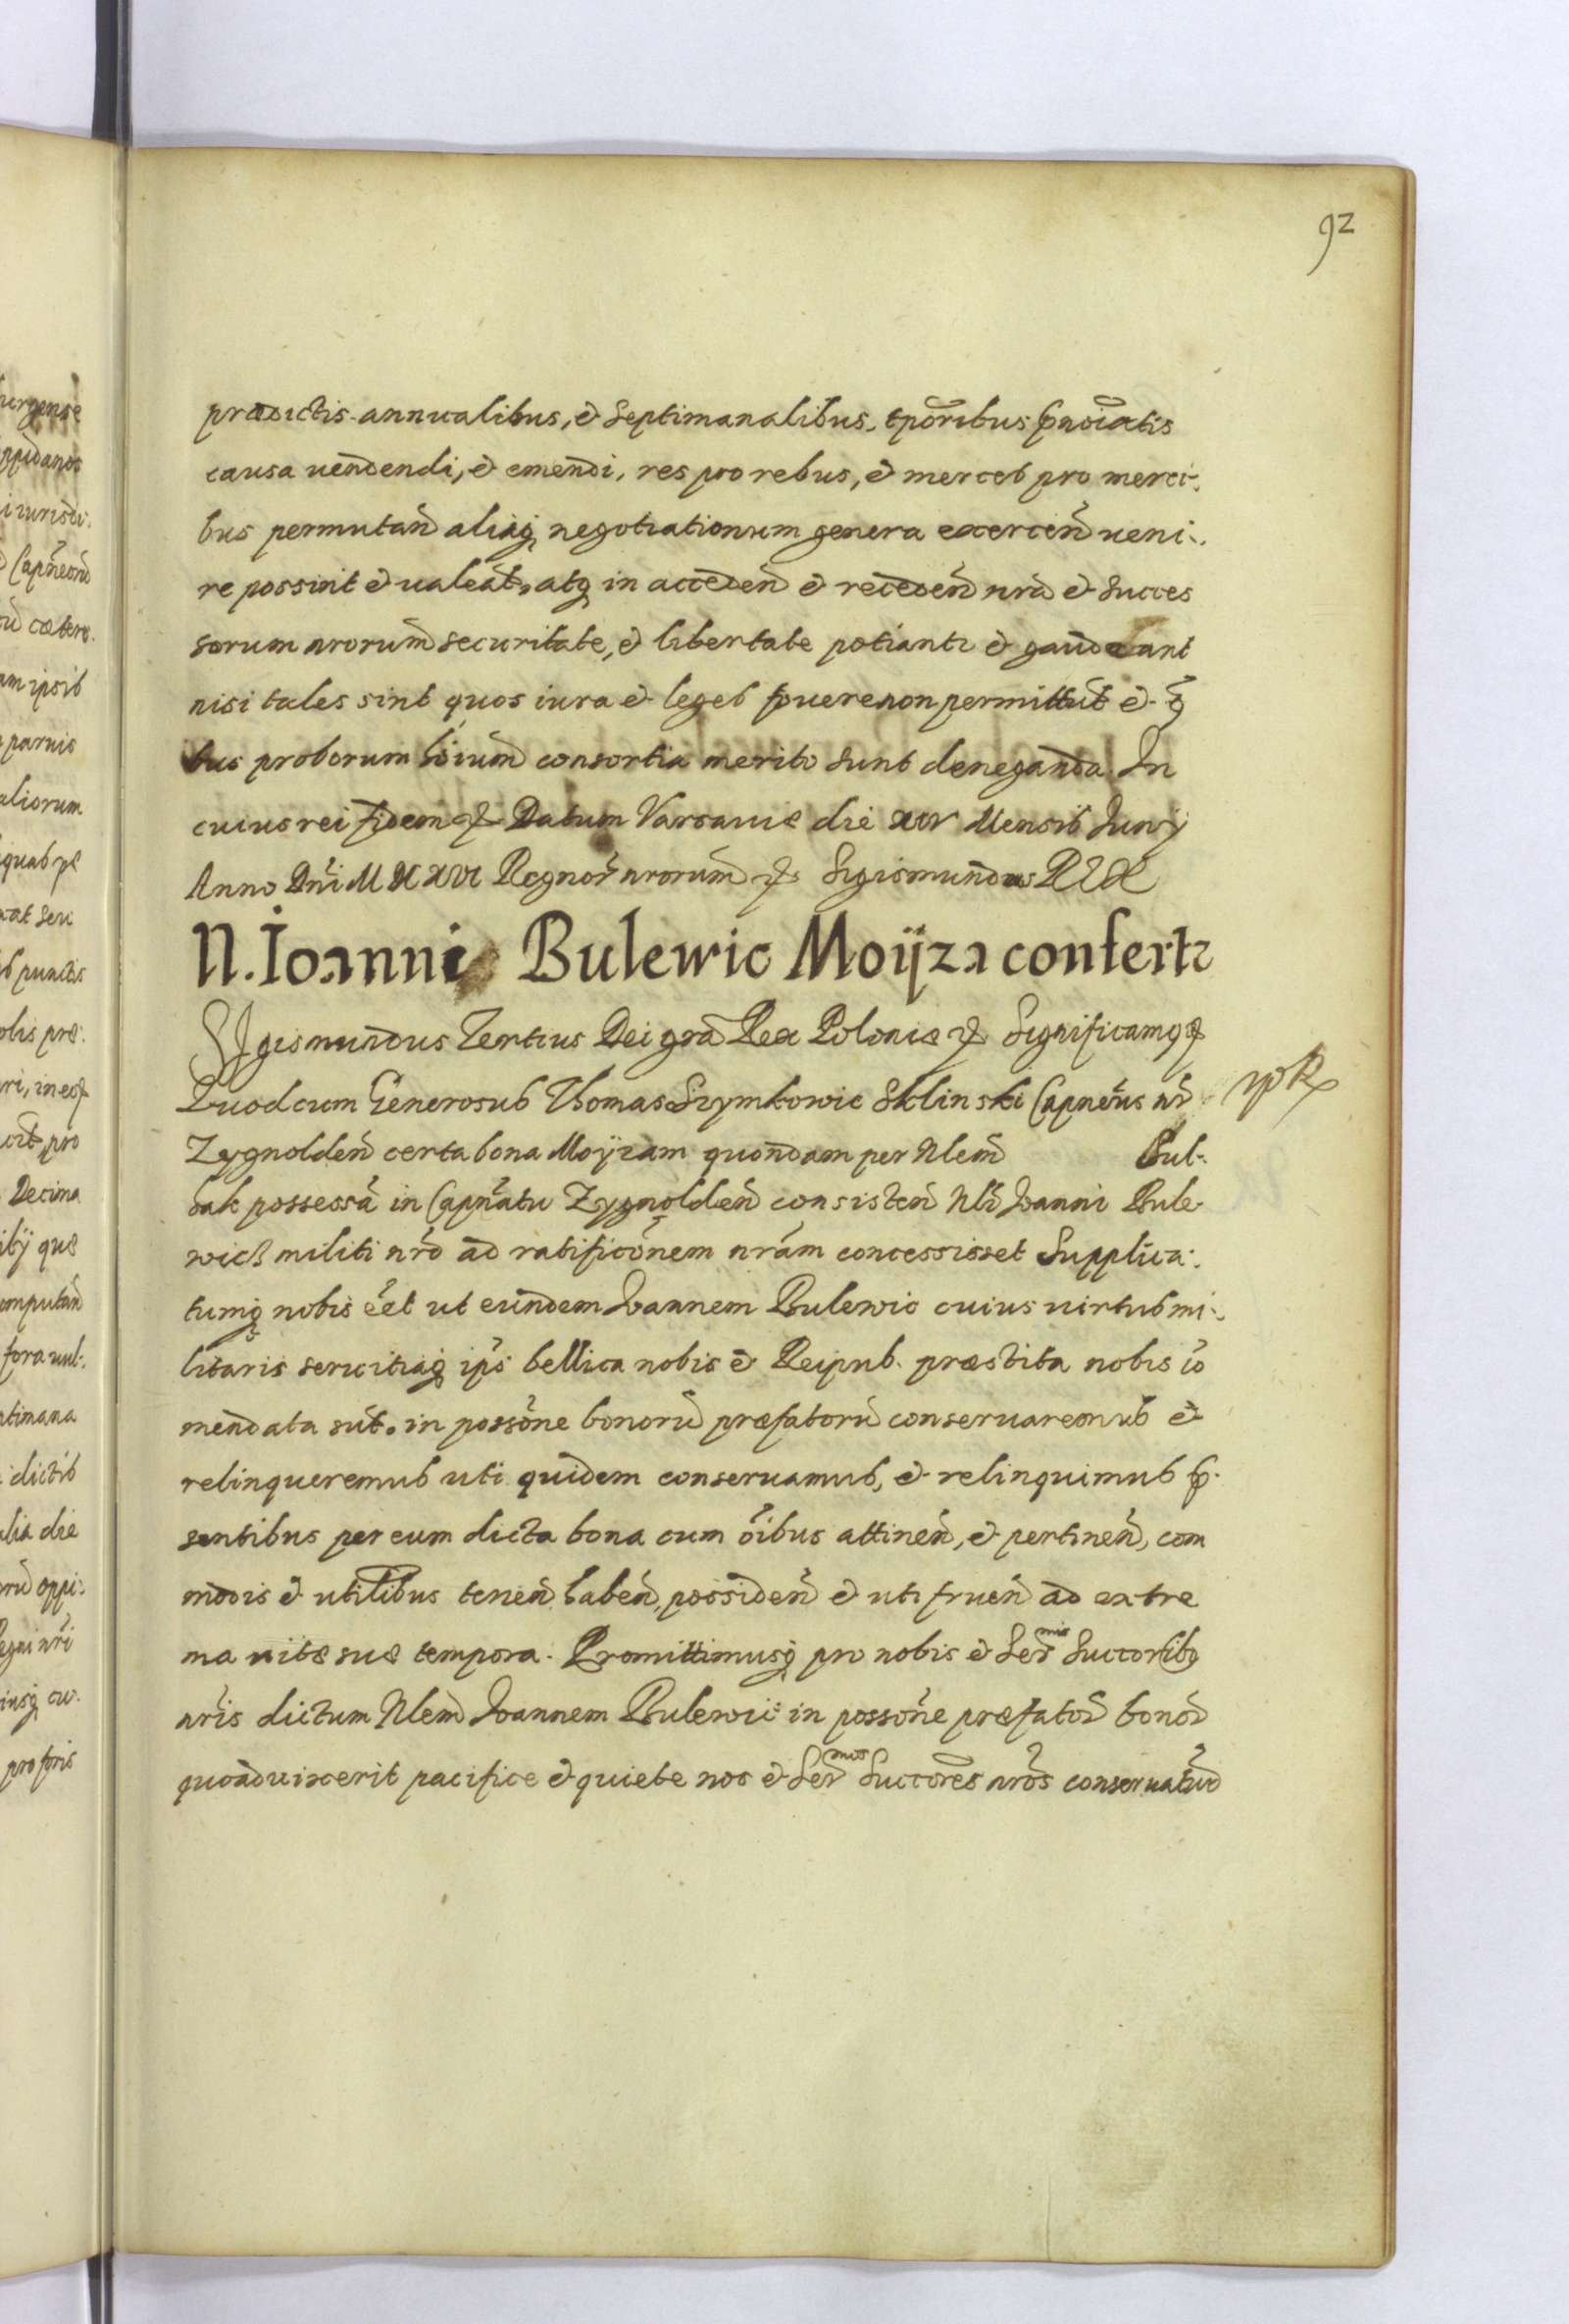 92
prædictis annualibus, et Septimanalibus, tp̃oribus p̃noĩatis
causa uendendi, et emendi, res pro rebus, et merces pro merci-
bus permutañ aliaq̃ negotiationum genera excerceñ ueni-
re possint et ualeãt, atq̃ in accedeñ et recedeñ nrã et Succes
sorum nrorum securitate, et libertate potiantr et gaudeant
nisi tales sint quos iura et leges fouere non permittũt et q̃
bus proborum hõium consortia merito sunt deneganda. In
cuius rei fidem etc. Datum Varsauiæ die XIV Mensis Junij
Anno Dñi M Regnoȓ nrorum etc. Sigismundus Rex
N. Ioanni Bulewic Moÿza confertr
Sigismundus Tertius Dei grã Rex Poloniæ etc. Significamq etc.
Quod cum Generosus Thomas Szymkowic Sklinski Capneũs nr̃
Zygnoldeñ certa bona Moÿzam quondam per Nlem̃ Bul-
hak possessã in Capñatu Zygnoldeñ consisteñ Nli Joanni Bule-
wicz militi nrõ ad ratificõnem nrãm concessisset Supplica-
tumq̃ nobis eẽt ut eundem Joannem Bulewic cuius uirtus mi-
litaris seruitiaq̃ ips̃i bellica nobis et Reipub. præstita nobis cõ
mendata sũt. in possõne bonorũ præfatorũ conseruaremus et
relinqueremus uti quidem conseruamus, et relinquimus p̃-
sentibus per eum dicta bona cum õibus attineñ, et pertineñ, com
modis et utilibus teneñ habeñ, possideñ et uti frueñ ad extre
ma uitæ suæ tempora. Promittimusq̃ pro nobis et Sermis Succorĩbq
nrĩs dictum Nlem Joannem Bulewic in possõne præfatoȓ bonoȓ
quoad uixerit pacifice et quiete nos et Sermos Succorẽs nrõs conseruatur̃